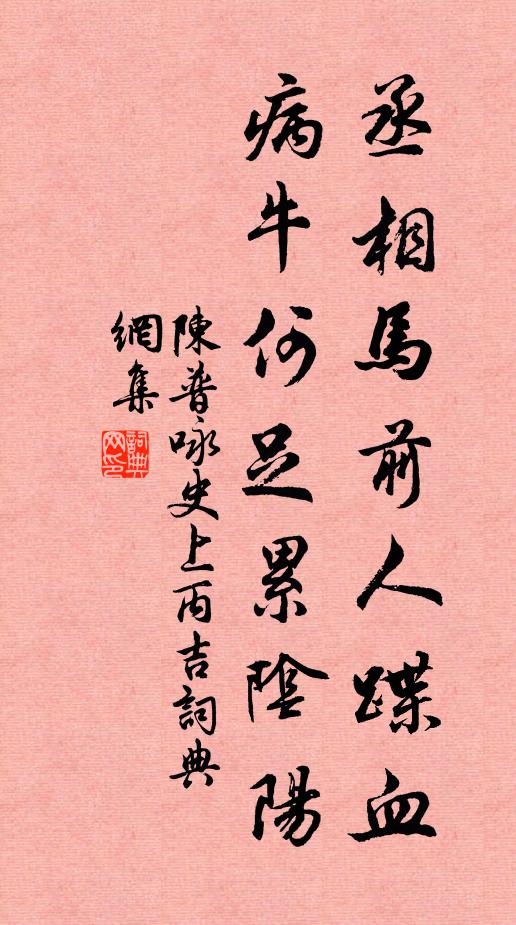 丞相馬前人蹀血
病牛何足累陰陽
陳普咏史上丙吉詞典
網集
詞典
网印